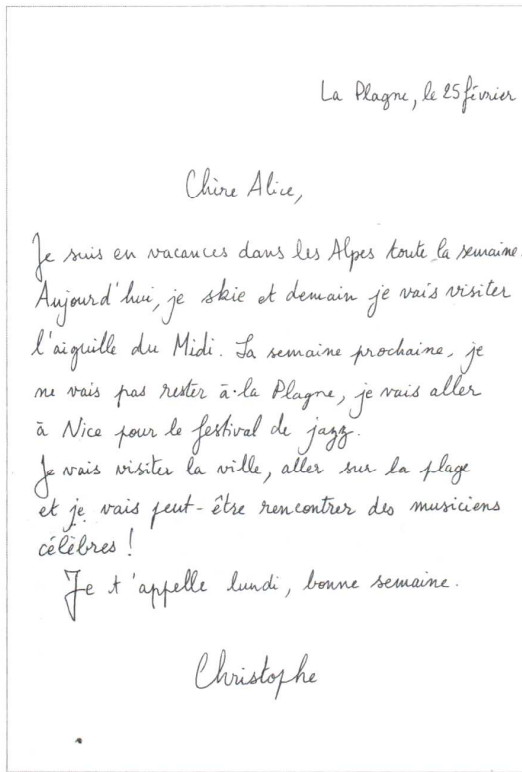 La Plagne, le 25 février
Chère Alice,
Je suis en vacances dans les Alpes toute la semaine.
Aujourd'hui, je skie et demain je vais visiter
l'aiguille du Midi. La semaine prochaine, je
ne vais pas rester à la Plagne, je vais aller
à Nice pour le festival de jazz.
Je vais visiter la ville, aller sur la plage
et je vais peut-être rencontrer des musiciens
célèbres !
Je t'appelle lundi, bonne semaine.
Christophe